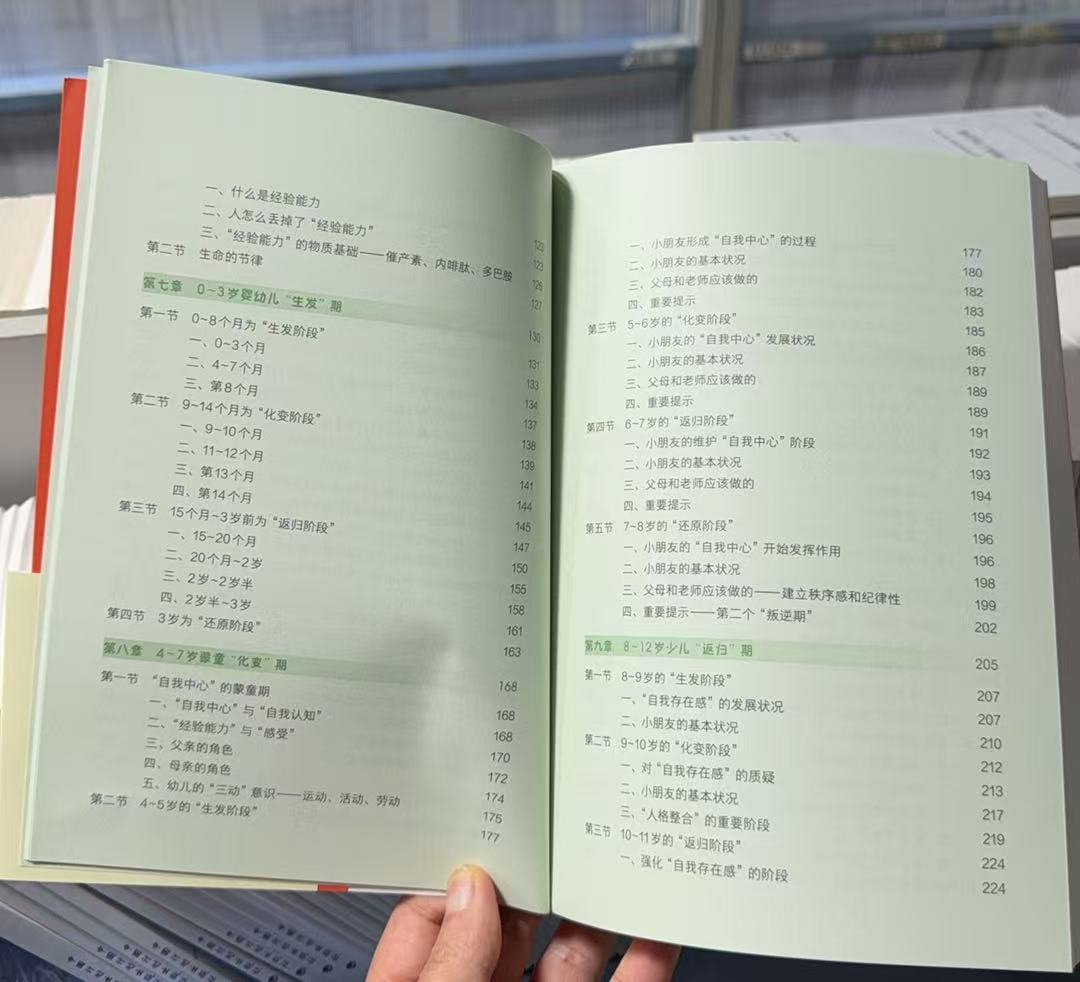 一、什么是经验能力 123
二、人怎么丢掉了“经验能力” 123
三、“经验能力”的物质基础——催产素、内啡肽、多巴胺 126
第二节 生命的节律 127
第七章 0~3岁婴幼儿“生发”期 130
第一节 0~8个月为“生发阶段” 131
一、0~3个月 133
二、4~7个月 134
三、第8个月 137
第二节 9~14个月为“化变阶段” 138
一、9~10个月 139
二、11~12个月 141
三、第13个月 144
四、第14个月 145
第三节 15个月~3岁前为“返归阶段” 147
一、15~20个月 150
二、20个月~2岁 155
三、2岁~2岁半 158
四、2岁半~3岁 161
第四节 3岁为“还原阶段” 163
第八章 4~7岁蒙童“化变”期 168
第一节 “自我中心”的蒙童期 168
一、“自我中心”与“自我认知” 168
二、“经验能力”与“感受” 170
三、父亲的角色 172
四、母亲的角色 174
五、幼儿的“三动”意识——运动、活动、劳动 175
第二节 4~5岁的“生发阶段” 177
一、小朋友形成“自我中心”的过程 177
二、小朋友的基本状况 180
三、父母和老师应该做的 182
四、重要提示 183
第三节 5~6岁的“化变阶段” 185
一、小朋友的“自我中心”发展状况 186
二、小朋友的基本状况 187
三、父母和老师应该做的 189
四、重要提示 189
第四节 6~7岁的“返归阶段” 191
一、小朋友的维护“自我中心”阶段 192
二、小朋友的基本状况 193
三、父母和老师应该做的 194
四、重要提示 195
第五节 7~8岁的“还原阶段” 196
一、小朋友的“自我中心”开始发挥作用 196
二、小朋友的基本状况 198
三、父母和老师应该做的——建立秩序感和纪律性 199
四、重要提示——第二个“叛逆期” 202
第九章 8~12岁少儿“返归”期 205
第一节 8~9岁的“生发阶段” 207
一、“自我存在感”的发展状况 207
二、小朋友的基本状况 210
第二节 9~10岁的“化变阶段” 212
一、对“自我存在感”的质疑 213
二、小朋友的基本状况 217
三、“人格整合”的重要阶段 219
第三节 10~11岁的“返归阶段” 224
一、强化“自我存在感”的阶段 224